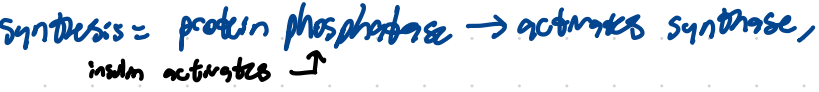 synthesis = protein phosphatase → activates synthase,
insulin activates